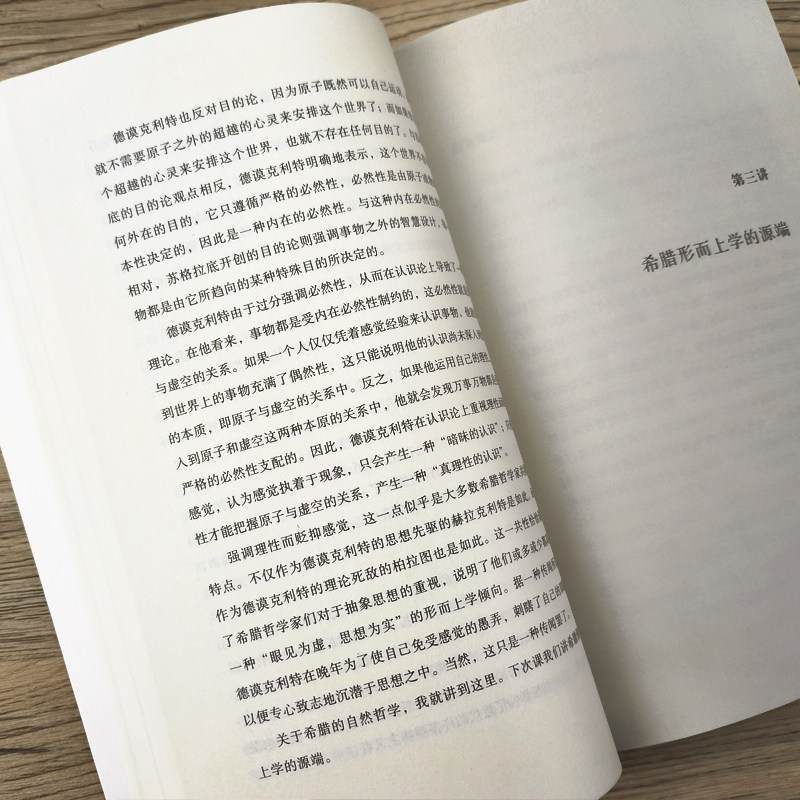 德谟克利特也反对目的论，因为原子既然可以自己运动，
就不需要原子之外的超越的心灵来安排这个世界了；而如果
个超越的心灵来安排这个世界，也就不存在任何目的了。与
底的目的论观点相反，德谟克利特明确地表示，这个世界不
何外在的目的，它只遵循严格的必然性，必然性是由原子
本性决定的，因此是一种内在的必然性。与这种内在必然性
相对，苏格拉底开创的目的论则强调事物之外的智慧设计，
物都是由它所趋向的某种特殊目的所决定的。
德谟克利特由于过分强调必然性，从而在认识论上导致了一
理论。在他看来，事物都是受内在必然性制约的，这必然性
与虚空的关系。如果一个人仅仅凭着感觉经验来认识事物，
到世界上的事物充满了偶然性，这只能说明他的认识尚未深入
的本质，即原子与虚空的关系中。反之，如果他运用自己的理性
人到原子和虚空这两种本原的关系中，他就会发现万事万物都
严格的必然性支配的。因此，德谟克利特在认识论上重视理性
感觉，认为感觉执着于现象，只会产生一种“暗昧的认识”；
性才能把握原子与虚空的关系，产生一种“真理性的认识”。
强调理性而贬抑感觉，这一点似乎是大多数希腊哲学家
特点。不仅作为德谟克利特的思想先驱的赫拉克利特是如此，
作为德谟克利特的理论死敌的柏拉图也是如此。这一共性
了希腊哲学家们对于抽象思想的重视，说明了他们或多或少
一种“眼见为虚，思想为实”的形而上学倾向。据一种传闻
德谟克利特在晚年为了使自己免受感觉的愚弄，刺瞎了自己的
以便专心致志地沉潜于思想之中。当然，这只是一种传闻罢了。
关于希腊的自然哲学，我就讲到这里。下次课我们讲希腊
上学的源端。
第三讲
希腊形而上学的源端